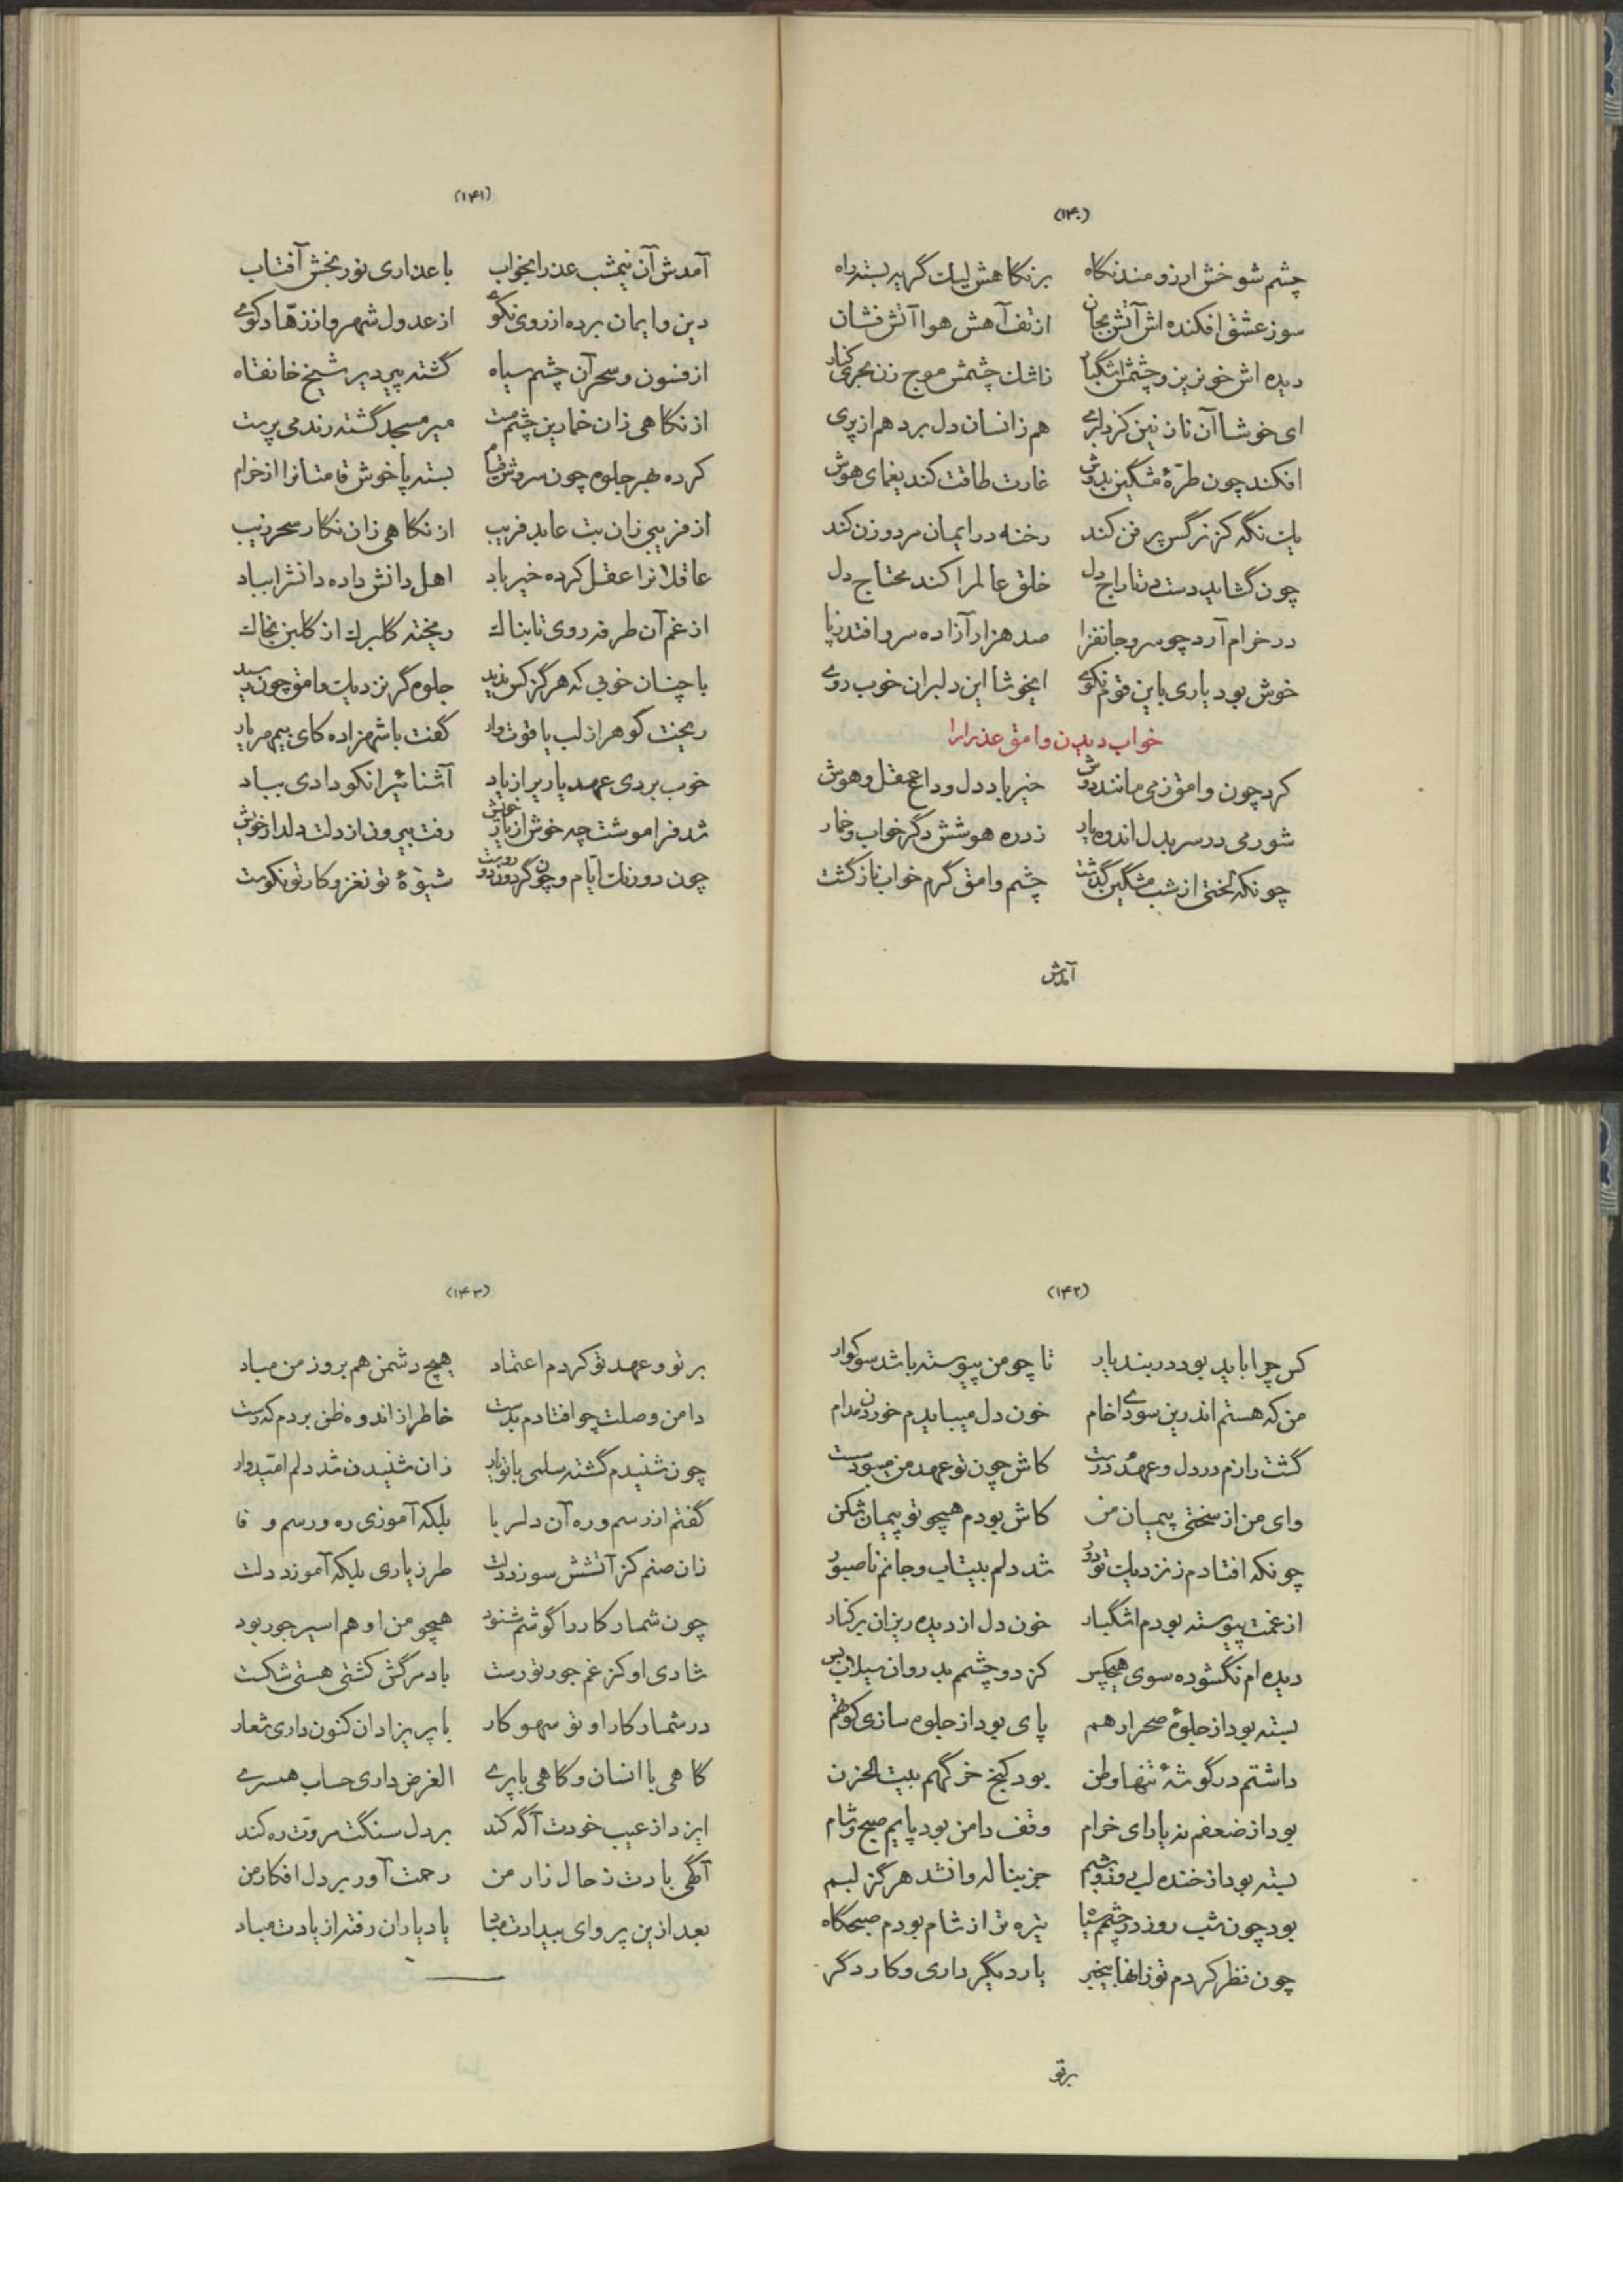 (۱۴۰)
چشم شوخش ارزومند نگاه برنگاهش لیك گریه بسته راه
سوز عشق افکنده اش آتش بجان از تف آهش هوا آتش فشان
دیده اش خونریز و چشمش اشگبار زاشك چشمش موج زن بحری کنار
ای خوشا آن نازنین کز دلبری هم زانسان دل برد هم از پری
افکند چون طرّهٔ مشگین بدوش غارت طاقت کند یغمای هوش
یك نگه کز نرگس پر فن کند رخنه در ایمان مرد و زن کند
چون گشاید دست در تاراج دل خلق عالمرا کند محتاج دل
در خرام آرد چو سرو جانفزا صد هزار آزاده سرو افتد زپا
خوش بود یاری باین قوم نکوی ایخوشا این دلبران خوب روی
خواب دیدن وامق عذرا را
کرد چون وامق زمی مانند دوش خیرباد دل وداع عقل و هوش
شور می در سر بدل اندوه یار زد ره هوشش دگر خواب و خمار
چونکه لختی از شب مشگین گذشت چشم وامق گرم خواب ناز گشت
آمدش
(۱۴۱)
آمدش آن نیمشب عذرا بخواب با عذاری نور بخش آفتاب
دین و ایمان برده از روی نکوی از عدول شهر و از زهّاد کوی
از فسون و سحر آن چشم سیاه گشته پیر دیر شیخ خانقاه
از نگاهی زان خمارین چشم مست میر مسجد گشته رند می پرست
کرده بهر جلوه چون سروش قیام بسته پا خوش قامتانرا از خرام
از فریبی زان بت عابد فریب از نگاهی زان نگار سحر زیب
عاقلانرا عقل کرده خیرباد اهل دانش داده دانشرا بباد
از غم آن طرفه روی تابناك ریخته گلبرك از گلبن بخاك
با چنان خوبی که هرگز کس ندید جلوه گر نزدیك وامق چون رسید
ریخت گوهر از لب یاقوت وار گفت با شهزاده کای بیمهر یار
خوب بردی عهد یاریرا زیاد آشنائیرا نکو دادی بباد
شد فراموشت چه خوش از یار خویش رفت بیرون از دلت دلدار خویش
چون دورنك ایّام و چون گردون دوروست شیوهٔ تو نغز و کار تو نکوست
(۱۴۲)
کس چرا باید بود در بند یار تا چو من پیوسته باشد سوگوار
من که هستم اندرین سودای خام خون دل میبایدم خوردن مدام
گشت رازم در دل و عهدم درست کاش چون تو عهد من میبود سست
وای من از سختی پیمان من کاش بودم همچو تو پیمان شکن
چونکه افتادم ز نزدیك تو دور شد دلم بیتاب و جانم ناصبور
از غمت پیوسته بودم اشگبار خون دل از دیده ریزان بر کنار
دیده ام نگشوده سوی هیچکس کز دو چشمم بد روان سیلاب بس
بسته بود از جلوهٔ صحرا رهم پای بود از جلوه سازی کوتهم
داشتم در گوشهٔ تنها وطن بود کنج خرگهم بیت الحزن
بود از ضعفم نه یارای خرام وقف دامن بود پایم صبح و شام
بسته بود از خنده لب روز و شبم جز بناله وا نشد هرگز لبم
بود چون شب روز در چشمم سیاه تیره تر از شام بودم صبحگاه
چون نظر کردم تو زانها بیخبر یار دیگر داری و کار دگر
برتو
(۱۴۳)
بر تو و عهد تو کردم اعتماد هیچ دشمن هم بروز من مباد
دامن وصلت چو افتادم بدست خاطر از اندوه ظن بردم که رست
چون شنیدم گشته سلمی با تو یار زان شنیدن شد دلم امّیدوار
گفتم از رسم و ره آن دلربا بلکه آموزی ره و رسم وفا
زان صنم کز آتشش سوزد دلت طرز یاری بلکه آموزد دلت
چون شمار کار را گوشم شنود همچو من او هم اسیر جور بود
شادی او کز غم جور تو رست باد مرگش کشتی هستی شکست
در شمار کار او تو سهو کار با پریزادان کنون داری شعار
گاهی با انسان و گاهی با پری الغرض داری حساب همسری
ایزد از عیب خودت آگه کند بر دل سنگت مروّت ره کند
آگهی بادت ز حال زار من رحمت آور بر دل افکار من
بعد ازین پروای بیدادت مباد یاد یاران رفته از یادت مباد